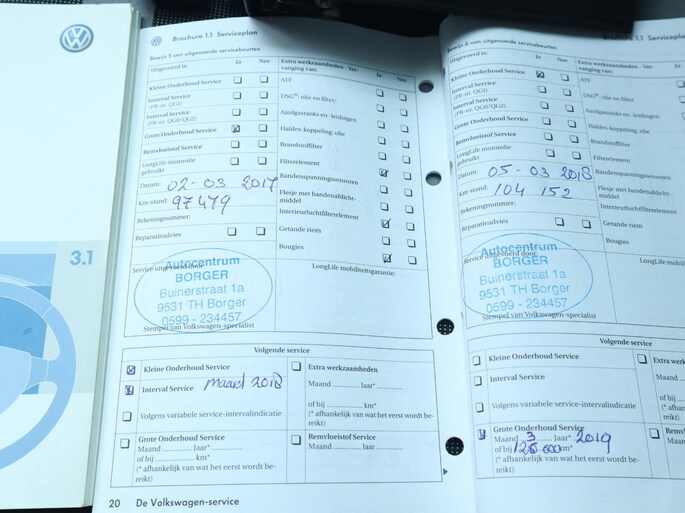 3.1
Brochure 1.1 Serviceplan
Bewijs 5 van uitgevoerde servicebeurten
Uitgevoerd is: Ja Nee
Kleine Onderhoud Service
Interval Service
(PR-nr. QG1)
Interval Service
(PR-nr. QG0/QG2)
Grote Onderhoud Service
Remvloeistof Service
LongLife motorolie
gebruikt
Datum: 02-03 2017
Km-stand: 97479
Rekeningnummer:
Reparatieadvies
Service uitgevoerd door:
Autocentrum
BORGER
Buinerstraat 1a
9531 TH Borger
0599 - 234457
Stempel van Volkswagen-specialist
Extra werkzaamheden - Ver-
vanging van: Ja Nee
ATF
DSG®: olie en filter
Aardgastanks en -leidingen
Haldex-koppeling: olie
Brandstoffilter
Filterelement
Bandenspanningssensoren
Flesje met bandenafdicht-
middel
Interieurluchtfilterelement
Getande riem
Bougies
LongLife mobiliteitsgarantie:
Volgende service
Kleine Onderhoud Service
Interval Service maart 2018
Volgens variabele service-intervalindicatie
Grote Onderhoud Service
Maand Jaar*
of bij km*
(* afhankelijk van wat het eerst wordt be-
reikt)
Extra werkzaamheden
Maand Jaar*
of bij km*
(* afhankelijk van wat het eerst wordt be-
reikt)
Remvloeistof Service
Maand Jaar
20 De Volkswagen-service
Brochure 1.1 Serviceplan
Bewijs 6 van uitgevoerde servicebeurten
Uitgevoerd is: Ja Nee
Kleine Onderhoud Service
Interval Service
(PR-nr. QG1)
Interval Service
(PR-nr. QG0/QG2)
Grote Onderhoud Service
Remvloeistof Service
LongLife motorolie
gebruikt
Datum: 05-03 2018
Km-stand: 104 152
Rekeningnummer:
Reparatieadvies
Service uitgevoerd door:
Autocentrum
BORGER
Buinerstraat 1a
9531 TH Borger
0599 - 234457
Stempel van Volkswagen-specialist
Extra werkzaamheden - Ver-
vanging van:
ATF
DSG®: olie en filter
Aardgastanks en -leidingen
Haldex-koppeling: olie
Brandstoffilter
Filterelement
Bandenspanningssensoren
Flesje met bandenafdicht-
middel
Interieurluchtfilterelement
Getande riem
Bougies
LongLife mobil
Volgende service
Kleine Onderhoud Service
Interval Service
Volgens variabele service-intervalindicatie
Grote Onderhoud Service
Maand 3 Jaar* 2019
of bij km*
(* afhankelijk van wat het eerst wordt be-
reikt)
Extra werk
Maand
of bij
(* afhankelij
reikt)
Remvl
Maand
De Volkswagen-service